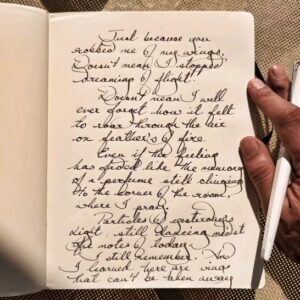 Just because you
robbed me of my wings,
Doesn't mean I stopped
dreaming of flight.
Doesn't mean I will
ever forget how it felt
to roar through the air
on feathers of fire
Even if the feeling
has faded like the memory
of a perfume still clinging
to the corner of the room,
where I pray.
Particles of yesterday's
light, still dancing midst
the notes of today
I still remember.
I learned there are wings
that can't be taken away